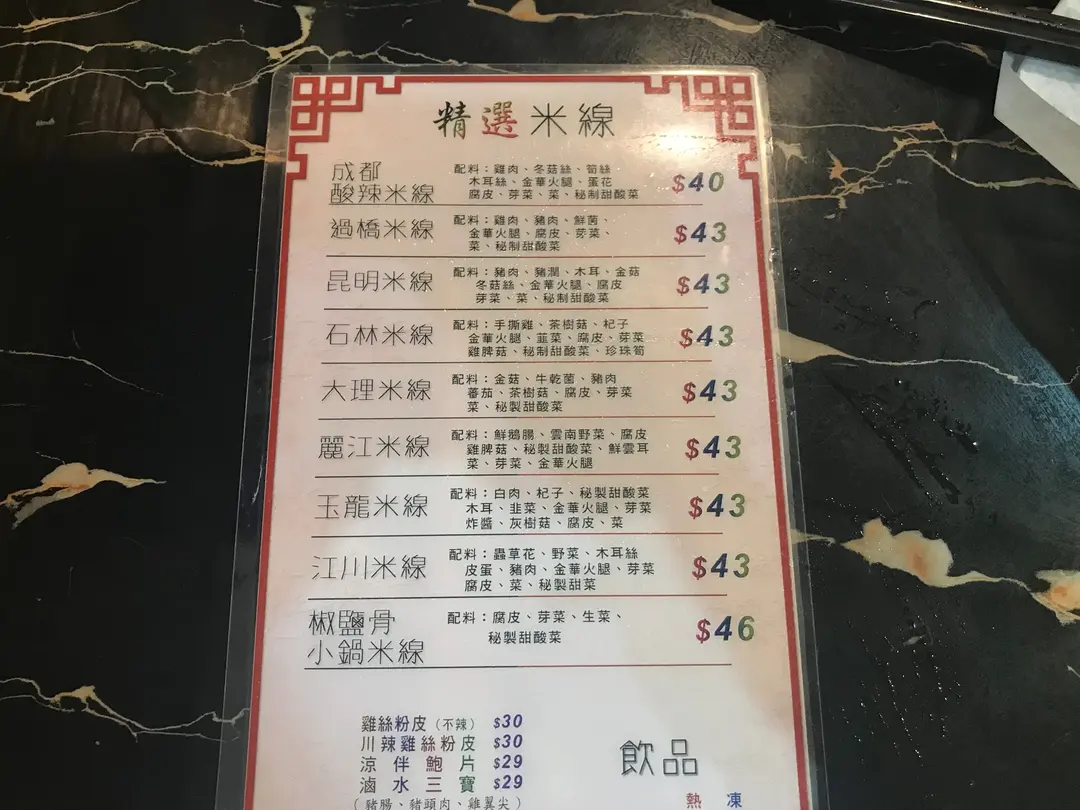 精選米線
成都
酸辣米線
配料：雞肉、冬菇絲、筍絲
木耳絲、金華火腿、蛋花
腐皮、芽菜、菜、秘制甜酸菜
$40
過橋米線
配料：雞肉、豬肉、鮮菌、
金華火腿、腐皮、芽菜、
菜、秘制甜酸菜
$43
昆明米線
配料：豬肉、豬潤、木耳、金菇
冬菇絲、金華火腿、腐皮
芽菜、菜、秘制甜酸菜
$43
石林米線
配料：手撕雞、茶樹菇、杞子
金華火腿、韮菜、腐皮、芽菜
雞脾菇、秘制甜酸菜、珍珠筍
$43
大理米線
配料：金菇、牛乾菌、豬肉
蕃茄、茶樹菇、腐皮、芽菜
菜、秘製甜酸菜
$43
麗江米線
配料：鮮鵝腸、雲南野菜、腐皮
雞脾菇、秘製甜酸菜、鮮雲耳
菜、芽菜、金華火腿
$43
玉龍米線
配料：白肉、杞子、秘製甜酸菜
木耳、韭菜、金華火腿、芽菜
炸醬、灰樹菇、腐皮、菜
$43
江川米線
配料：蟲草花、野菜、木耳絲
皮蛋、豬肉、金華火腿、芽菜
腐皮、菜、秘製甜菜
$43
椒鹽骨
小鍋米線
配料：腐皮、芽菜、生菜、
秘製甜酸菜
$46
雞絲粉皮（不辣） $30
川辣雞絲粉皮 $30
涼伴鮑片 $29
滷水三寶 $29
（豬腸、豬頭肉、雞翼尖）
飲品
熱 凍